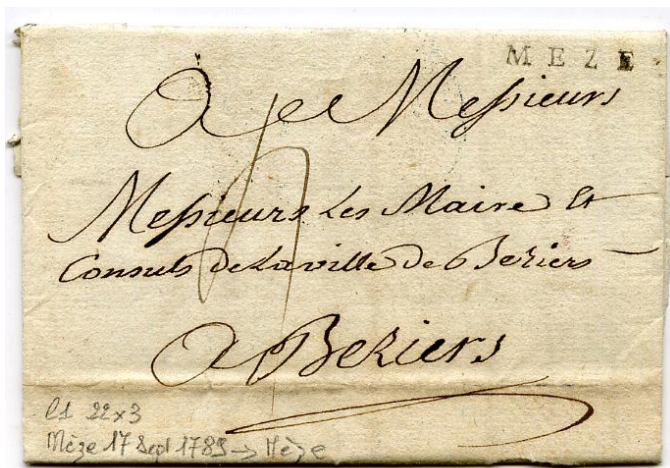 MEZE
A Messieurs
Messieurs Les Maire Et
Consuls de Laville de Beziers
A Beziers
22x3
Mèze 17 Sept 1789 → Mèze